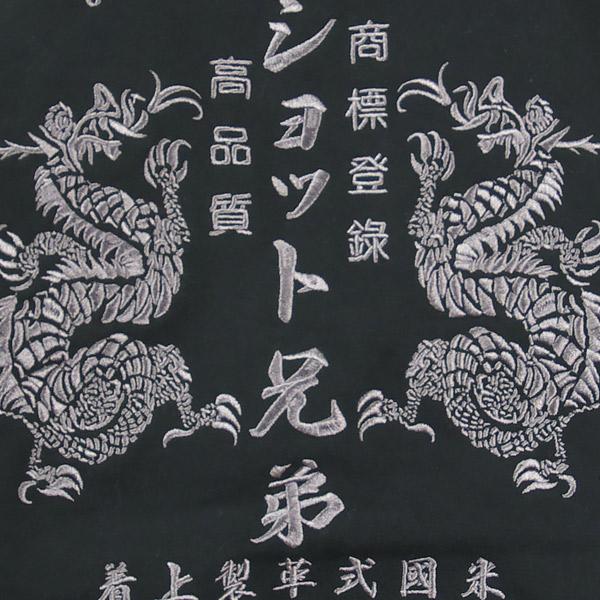 商標登錄
ショット兄弟
高品質
米國式革製上着